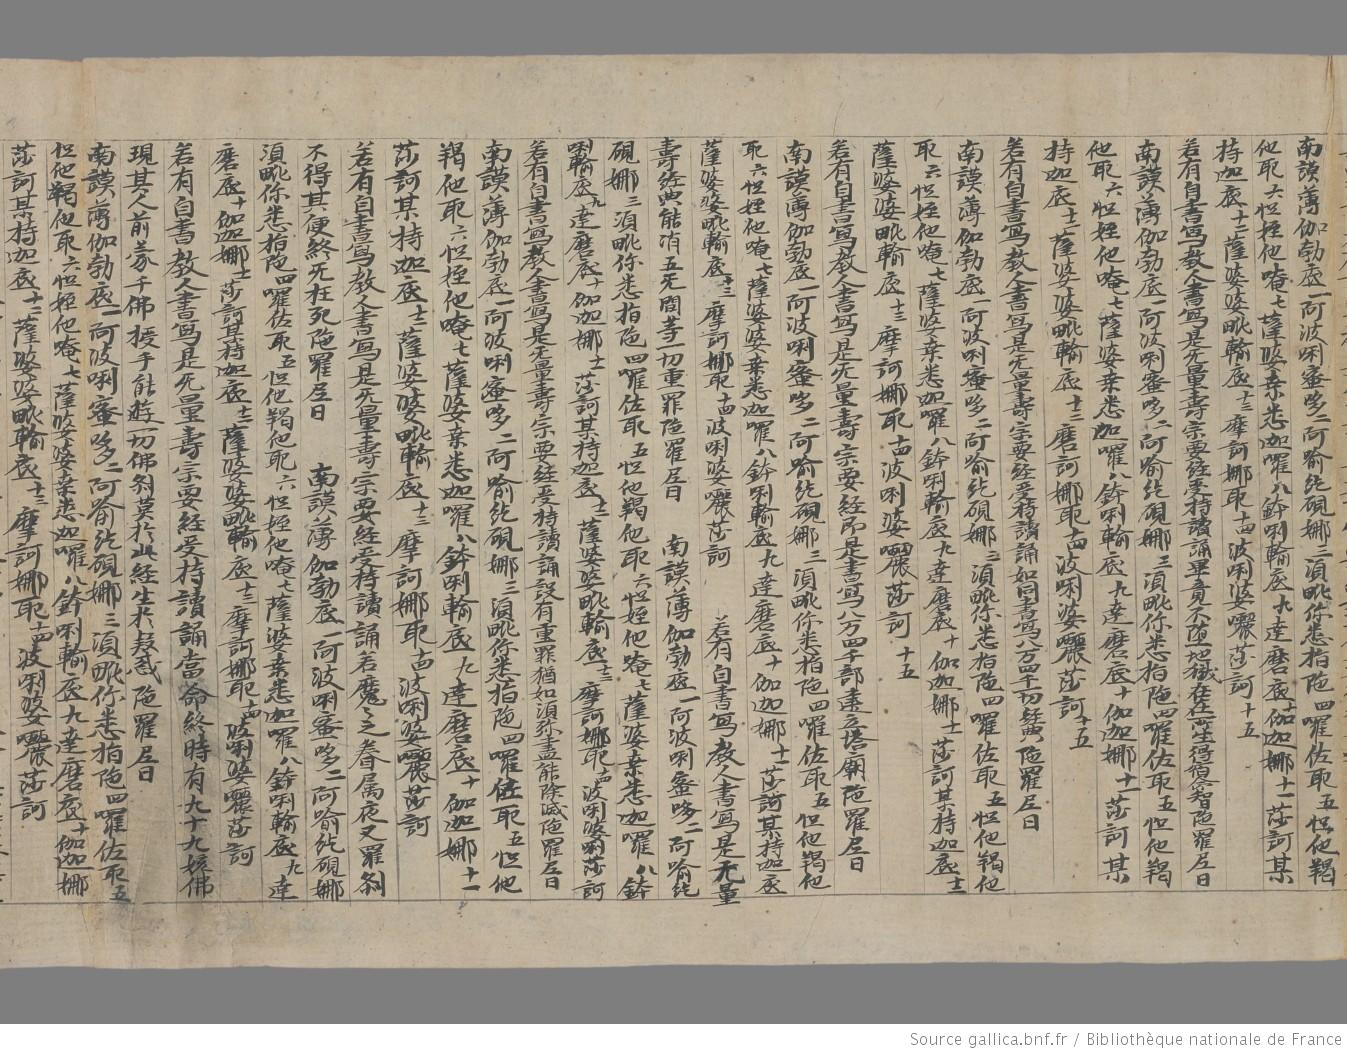 南謨薄伽勃底一阿波唎蜜哆二阿喻紇硯娜三湏毗你悉指陁四囉佐耶五怛他羯
他耶六怛姪他唵七薩婆桒悉迦囉八鉢唎輸底九達磨底十伽迦娜十一莎訶某
持迦底十二薩婆婆毗輸底十三摩訶娜耶十四波唎婆囇莎訶十五
若有自書寫教人書寫是无量壽宗要経受持讀誦畢竟不墮地獄在在所生得宿智陁羅尼曰
南謨薄伽勃底一阿波唎蜜哆二阿喻紇硯娜三湏毗你悉指陁四囉佐耶五怛他羯
他耶六怛姪他唵七薩婆桒悉迦囉八鉢唎輸底九達磨底十伽迦娜十一莎訶某
持迦底十二薩婆婆毗輸底十三磨訶娜耶十四波唎婆囇莎訶十五
若有自書寫教人書寫是无量壽宗要経受持讀誦如同書寫八万四千一切経典陁羅尼曰
南謨薄伽勃底一阿波唎蜜哆二阿喻紇硯娜三湏毗你悉指陁四囉佐耶五怛他羯他
耶六怛姪他唵七薩婆桒悉迦囉八鉢唎輸底九達磨底十伽迦娜十一莎訶某持迦底十二
薩婆婆毗輸底十三摩訶娜耶十四波唎婆囇莎訶十五
若有自書寫教人書寫是无量壽宗要経即是書寫八万四千部建立塔廟陁羅尼曰
南謨薄伽勃底一阿波唎蜜哆二阿喻紇硯娜三湏毗你悉指陁四囉佐耶五怛他羯他
耶六怛姪他唵七薩婆婆桒悉迦囉八鉢唎輸底九達磨底十伽迦娜十一莎訶某持迦底
薩婆婆毗輸底十三摩訶娜耶十四波唎婆囇莎訶 若有自書寫教人書寫是无量
壽経典能消五无間等一切重罪陁羅尼曰 南謨薄伽勃底一阿波唎蜜哆二阿喻紇
硯娜三湏毗你悉指陁四囉佐耶五怛他羯他耶六怛姪他唵七薩婆桒悉迦囉八鉢
唎輸底九達磨底十伽迦娜十一莎訶某持迦底十二薩婆婆毗輸底十三摩訶娜耶十四波唎婆唎莎訶
若有自書寫教人書寫是无量壽宗要経受持讀誦設有重罪猶如湏弥盡能除滅陁羅尼曰
南謨薄伽勃底一阿波唎蜜哆二阿喻紇硯娜三湏毗你悉指陁四囉佐耶五怛他
羯他耶六怛姪他唵七薩婆桒悉迦囉八鉢唎輸底九達磨底十伽迦娜十一
莎訶某持迦底十二薩婆婆毗輸底十三摩訶娜耶十四波唎婆囇莎訶
若有自書寫教人書寫是无量壽宗要経受持讀誦若魔之眷属夜叉羅刹
不得其便終无枉死陁羅尼曰 南謨薄伽勃底一阿波唎蜜哆二阿喻紇硯娜
湏毗你悉指陁四囉佐耶五怛他羯他耶六怛姪他唵七薩婆桒悉迦囉八鉢唎輸底九達
磨底十伽迦娜十一莎訶某持迦底十二薩婆婆毗輸底十三摩訶娜耶十四波唎婆囇莎訶
若有自書教人書寫是无量壽宗要経受持讀誦當命終時有九十九姟佛
現其人前蒙千佛授手能遊一切佛刹莫於此経生於疑惑陁羅尼曰
南謨薄伽勃底一阿波唎蜜哆二阿喻紇硯娜三湏毗你悉指陁四囉佐耶五
怛他羯他耶六怛姪他唵七薩婆桒悉迦囉八鉢唎輸底九達磨底十伽迦娜
莎訶某持迦底十二薩婆婆毗輸底十三摩訶娜耶十四波唎婆囇莎訶
Source gallica.bnf.fr / Bibliothèque nationale de France